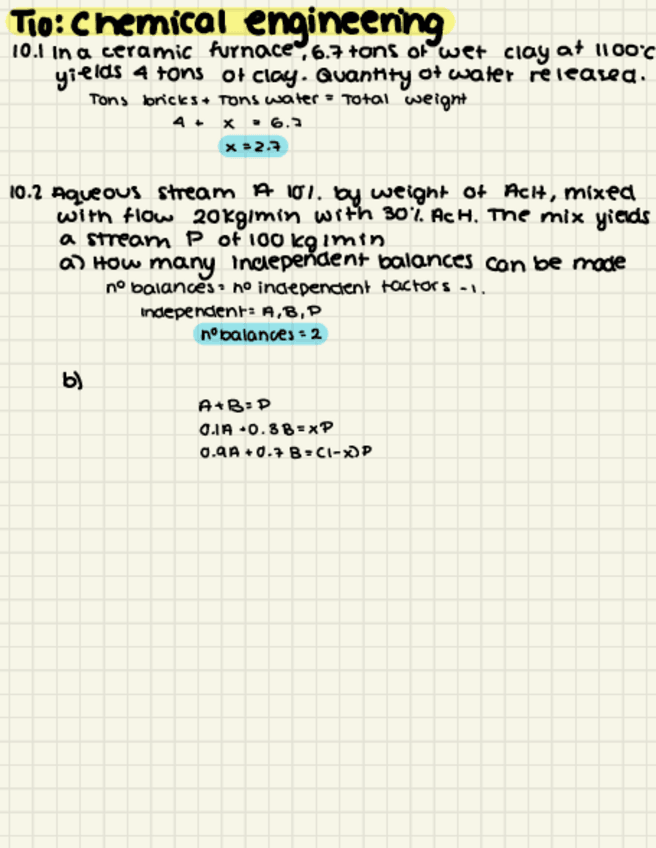 T10: Chemical engineering
10.1 In a ceramic furnace, 6.7 tons of wet clay at 1100°C
yields 4 tons of clay. Quantity of water released.
Tons bricks + Tons water = Total weight
4 + x = 6.7
x = 2.7
10.2 Aqueous stream A 10%. by weight of AcH, mixed
with flow 20kg/min with 30% AcH. The mix yields
a stream P of 100 kg/min
a) How many independent balances can be made
nº balances = nº independent factors -1.
Independent = A, B, P
nº balances = 2
b)
A + B = P
0.1A + 0.3B = xP
0.9A + 0.7B = (1-x)P